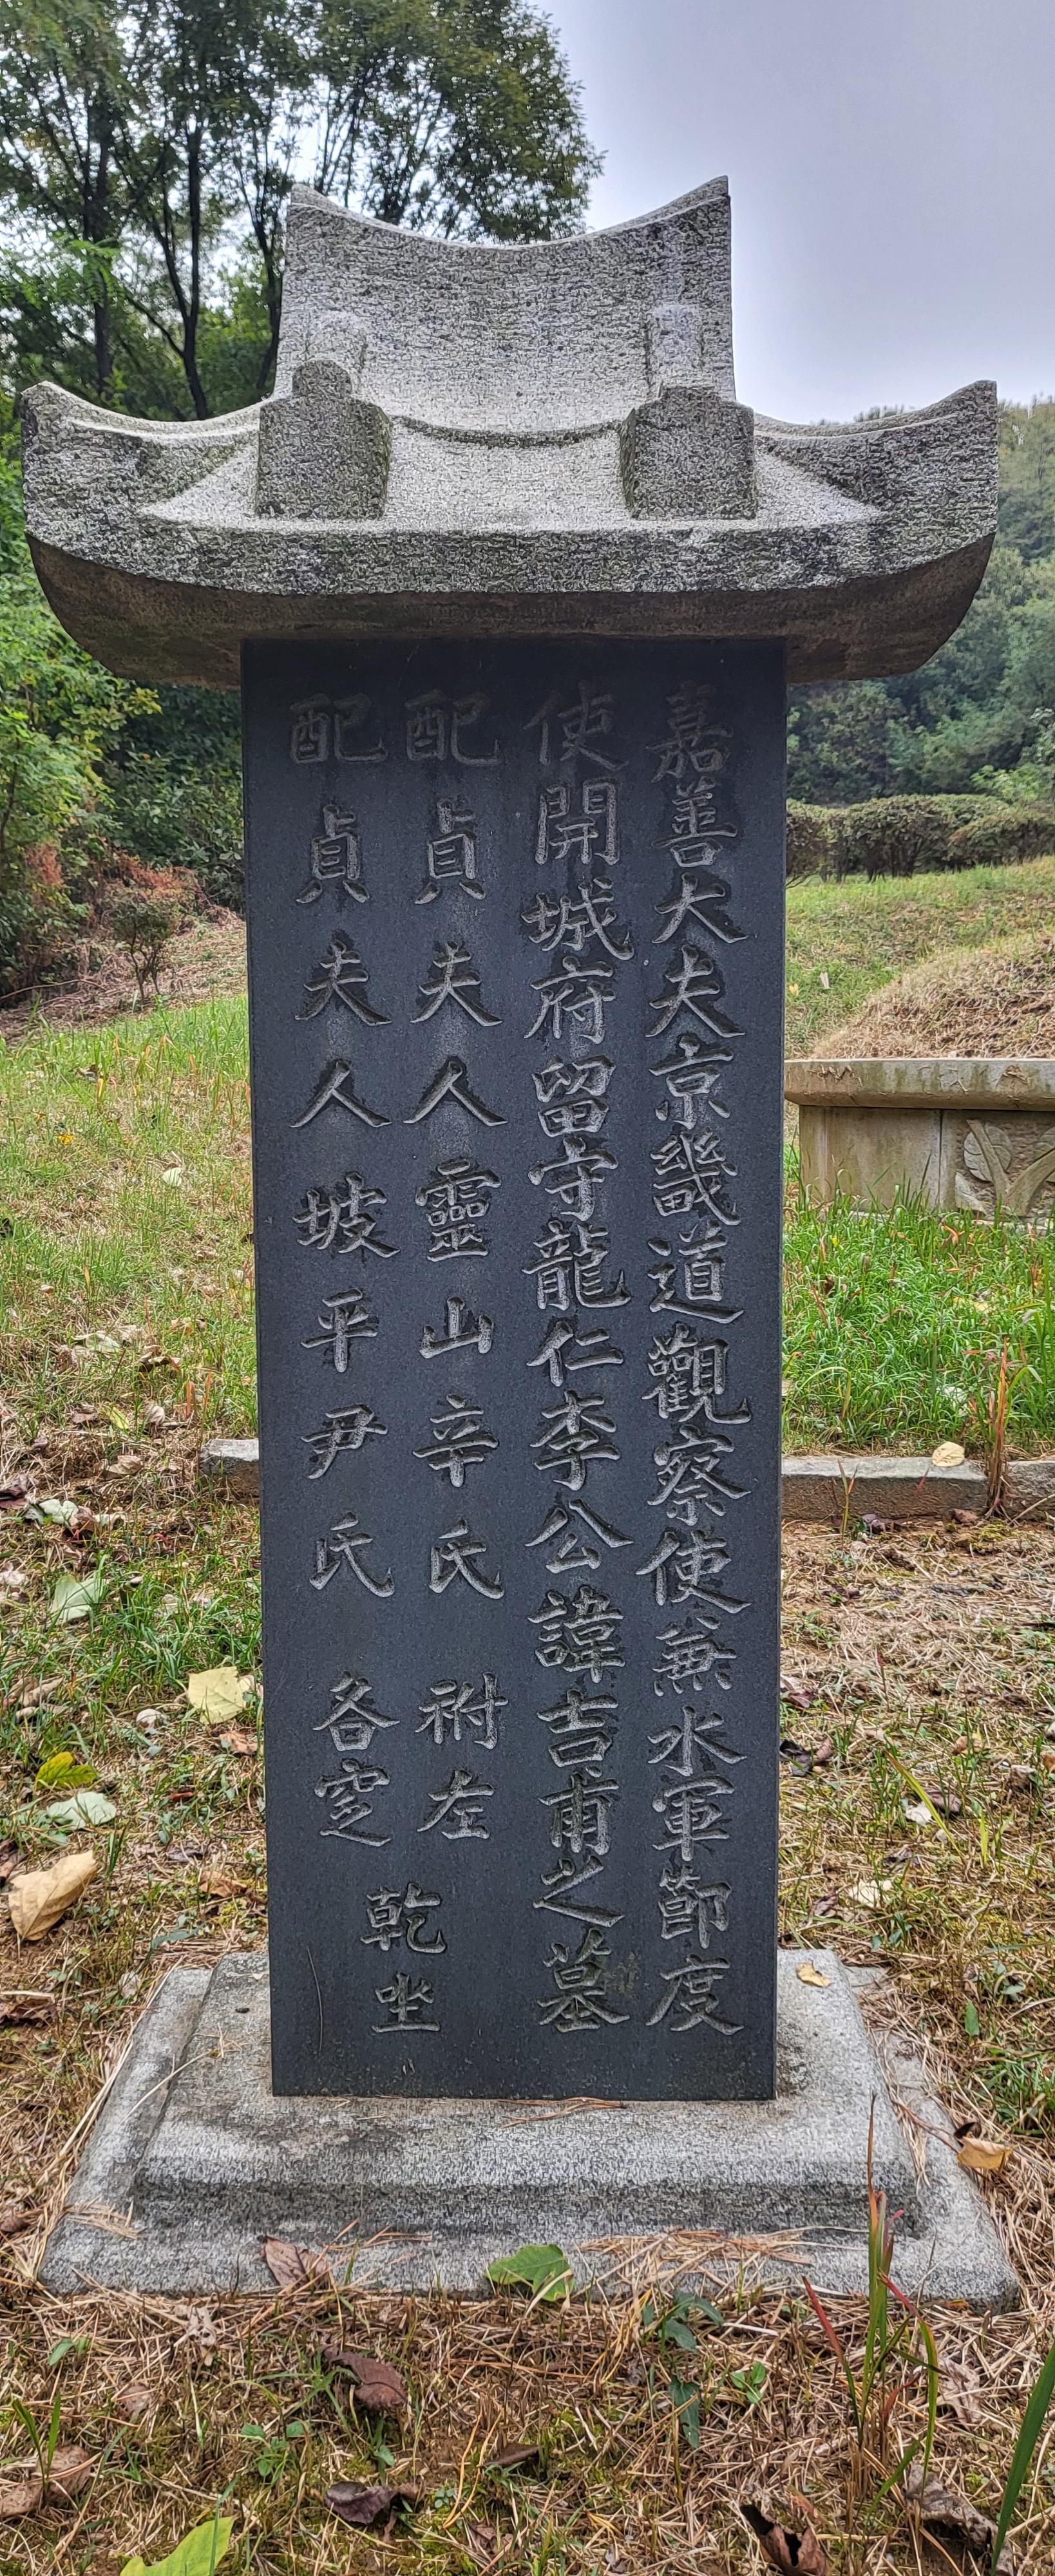 嘉善大夫京畿道觀察使兼水軍節度
使開城府留守龍仁李公諱吉甫之墓
配貞夫人靈山辛氏 祔左
配貞夫人坡平尹氏 各窆
乾坐